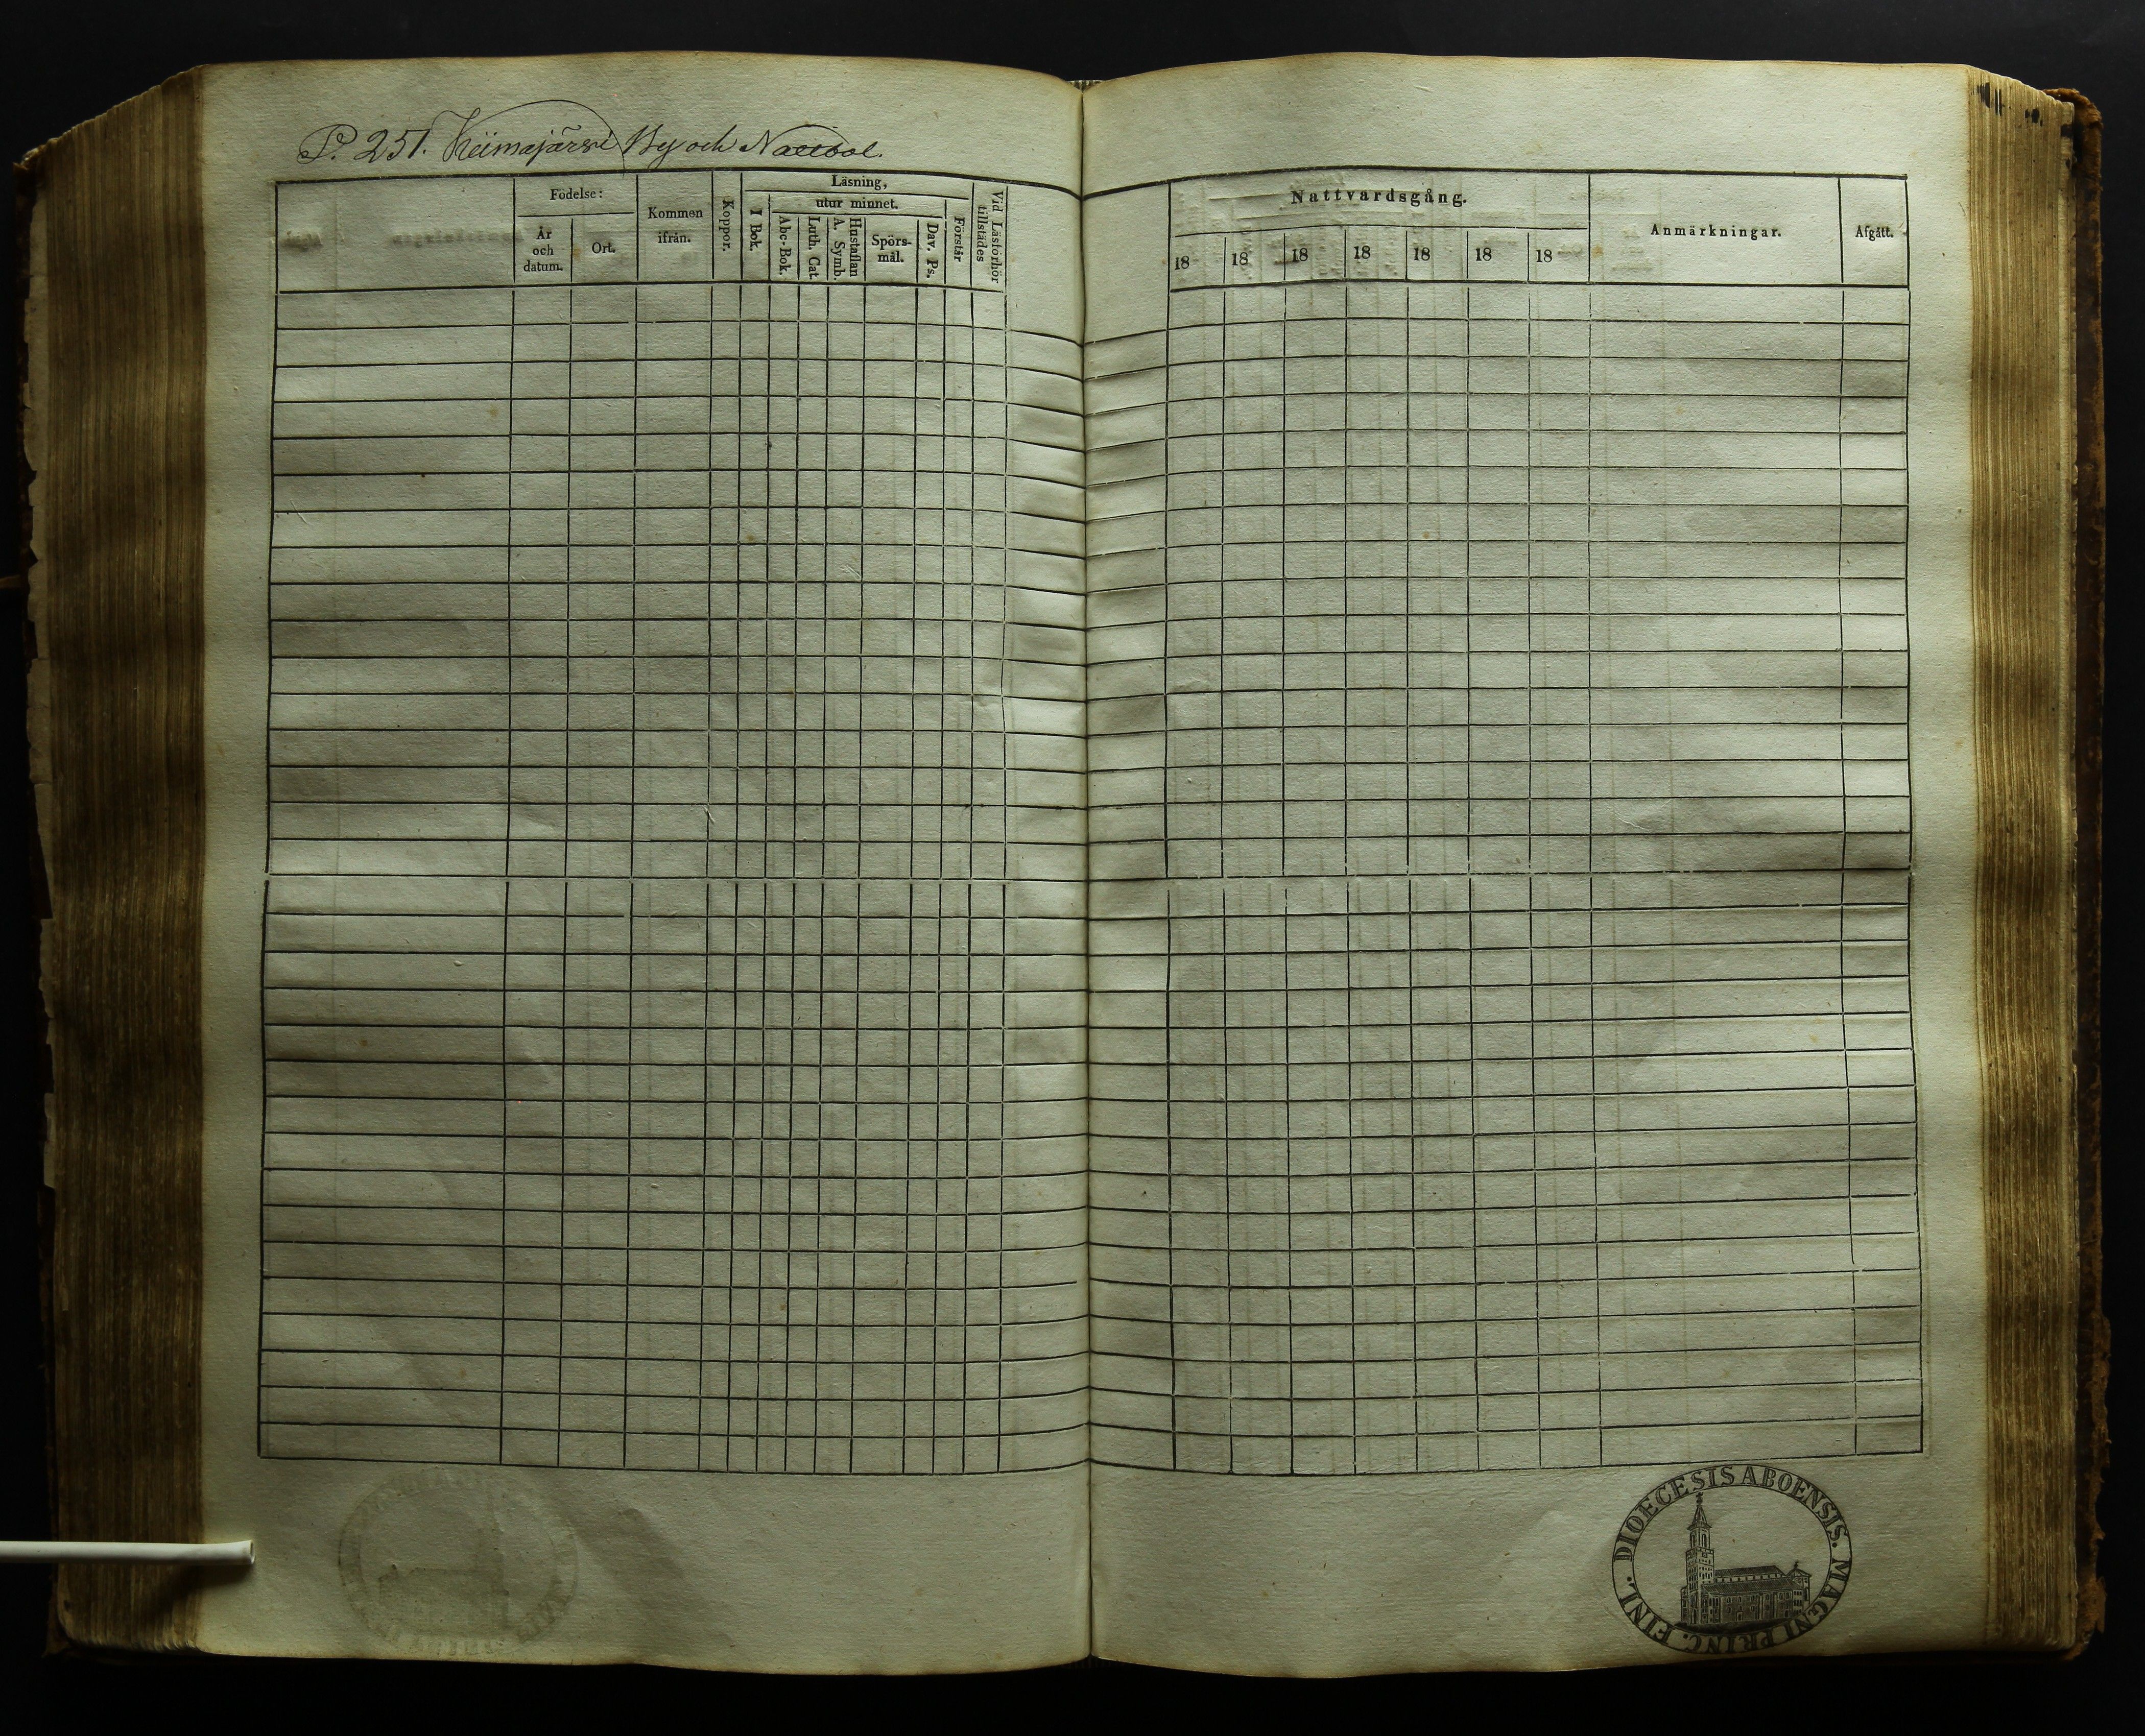 P. 251. Kiimajärvi By och Nattbol.
Födelse:
År
och
datum.
Ort.
Kommen
ifrån.
Koppor.
Läsning,
I Bok.
utur minnet.
Abc-Bok.
Luth. Cat.
Hustaflan
A. Symb.
Spörs-
mål.
Dav. Ps.
Förstår
Vid Läsförhör
tillstädes
Nattvardsgång.
18 18 18 18 18 18 18
Anmärkningar.
Afgått.
DIOECESIS ABOENSIS. MAGNI PRINC. FINL.